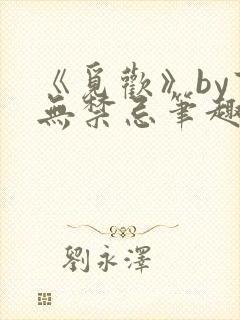 《覓歡》by
無禁忌筆趣
劉永澤